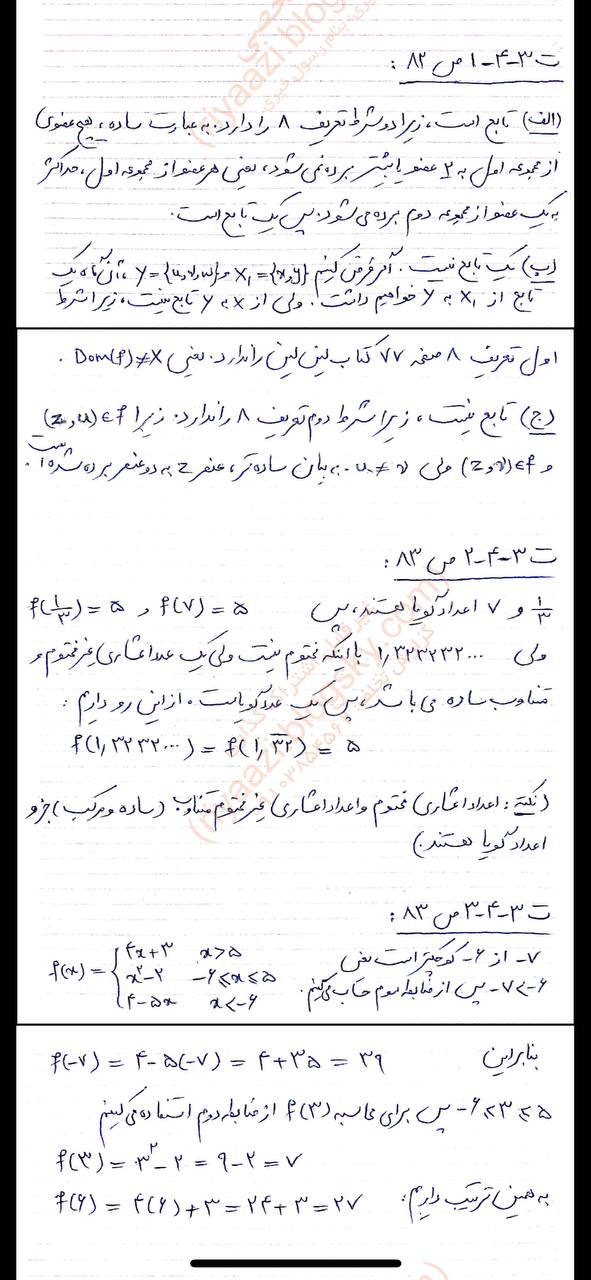 ت ۳-۴-۱ ص ۸۲ :
(الف) تابع است، زیرا دو شرط تعریف ۸ را دارد. به عبارت ساده، هیچ عضوی
از مجموعه اول به ۲ عضو یا بیشتر برده نمی شود، یعنی هر عضو از مجموعه اول، حداکثر
به یک عضو از مجموعه دوم برده می شود. پس یک تابع است.
(ب) یک تابع نیست. اگر فرض کنیم X₁ = {x, y} و Y = {u, v, w} ، آن گاه یک
تابع از X₁ به Y خواهیم داشت. ولی از X به Y تابع نیست، زیرا شرط
اول تعریف ۸ صفحه ۷۷ کتاب لین لین را ندارد. یعنی Dom(f) ≠ X .
(ج) تابع نیست، زیرا شرط دوم تعریف ۸ را ندارد. زیرا (z, u) ∈ f
و (z, v) ∈ f ولی u ≠ v . به بیان ساده تر، عنصر z به دو عنصر برده شده است.
ت ۳-۴-۲ ص ۸۳ :
۱/۳ و ۷ اعداد گویا هستند، پس f(۷) = ۵ و f(۱/۳) = ۵
ولی ۱٫۳۲۳۲۳۲... با اینکه مختوم نیست ولی یک عدد اعشاری غیر مختوم و
متناوب ساده می باشد، پس یک عدد گویاست. از این رو داریم :
f(۱٫۳۲۳۲...) = f(۱٫۳۲̅) = ۵
(نکته : اعداد اعشاری مختوم و اعداد اعشاری غیر مختوم متناوب (ساده و مرکب) جزو
اعداد گویا هستند.)
ت ۳-۴-۳ ص ۸۳ :
f(x) = { ۴x+۳ x>۵
x²-۲ -۶≤x≤۵
۴-۵x x<-۶
-۷ از -۶ کوچکتر است یعنی
-۷<-۶ پس از ضابطه سوم حساب می کنیم.
بنابراین f(-۷) = ۴-۵(-۷) = ۴+۳۵ = ۳۹
-۶≤۳≤۵ پس برای محاسبه f(۳) از ضابطه دوم استفاده می کنیم
f(۳) = ۳²-۲ = ۹-۲ = ۷
به همین ترتیب داریم: f(۶) = ۴(۶)+۳ = ۲۴+۳ = ۲۷
(riyaazi.blogsky.com)